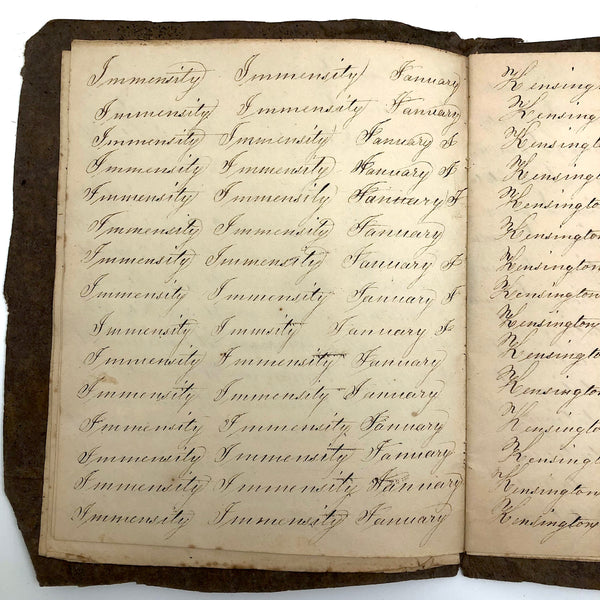 Immensity Immensity January
Immensity Immensity January
Immensity Immensity January J
Immensity Immensity January J
Immensity Immensity January J
Immensity Immensity January
Immensity Immensity January J
Immensity Immensity January J
Immensity Immnsity January J
Immensity Immensity January
Immensity Immensity January
Immensity Immensity January
Immensity Immensity January
Immensity Immensity January
Immensity Immensity January
Kensingt
Kensingt
Kensingto
Kensingto
Kensington
Kensington
Kensington
Kensington
Kensington
Kensington
Kensington
Kensingto
Kensington
Kensington
Kensington